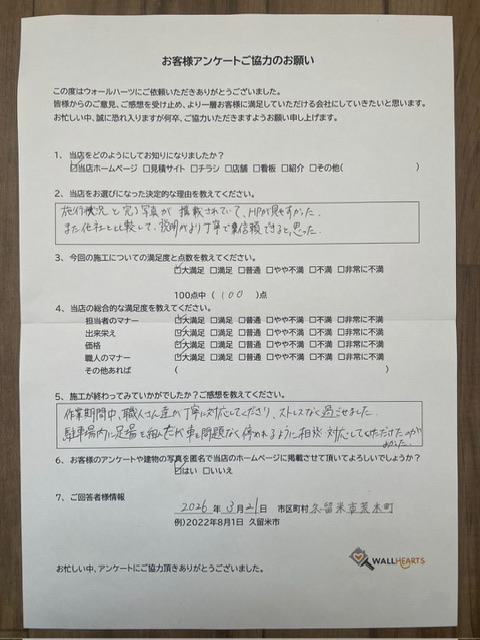 お客様アンケートご協力のお願い
この度はウォールハーツにご依頼いただきありがとうございました。
皆様からのご意見、ご感想を受け止め、より一層お客様に満足していただける会社にしていきたいと思います。
お忙しい中、誠に恐れ入りますが何卒、ご協力いただきますようお願い申し上げます。
1、当店をどのようにしてお知りになりましたか?
☑当店ホームページ □見積サイト □チラシ □店舗 □看板 □紹介 □その他( )
2、当店をお選びになった決定的な理由を教えてください。
施行状況と完了写真が掲載されていて、HPが見やすかった。
また他社と比較して、説明がより丁寧で信頼できると思った。
3、今回の施工についての満足度と点数を教えてください。
☑大満足 □満足 □普通 □やや不満 □不満 □非常に不満
100点中 ( 100 )点
4、当店の総合的な満足度を教えてください。
担当者のマナー ☑大満足 □満足 □普通 □やや不満 □不満 □非常に不満
出来栄え ☑大満足 □満足 □普通 □やや不満 □不満 □非常に不満
価格 ☑大満足 □満足 □普通 □やや不満 □不満 □非常に不満
職人のマナー ☑大満足 □満足 □普通 □やや不満 □不満 □非常に不満
その他あれば ( )
5、施工が終わってみていかがでしたか?ご感想を教えてください。
作業期間中、職人さん達が丁寧に対応してくださり、ストレスなく過ごせました。
駐車場内に足場を組んだが車を問題なく停めれるように相談・対応してくださったのが
よかった。
6、お客様のアンケートや建物の写真を匿名で当店のホームページに掲載させて頂いてよろしいでしょうか?
☑はい □いいえ
7、ご回答者様情報
2026 年 3月 21日 市区町村 久留米市荒木町
例)2022年8月1日 久留米市
WALLHEARTS
お忙しい中、アンケートにご協力頂きありがとうございました。